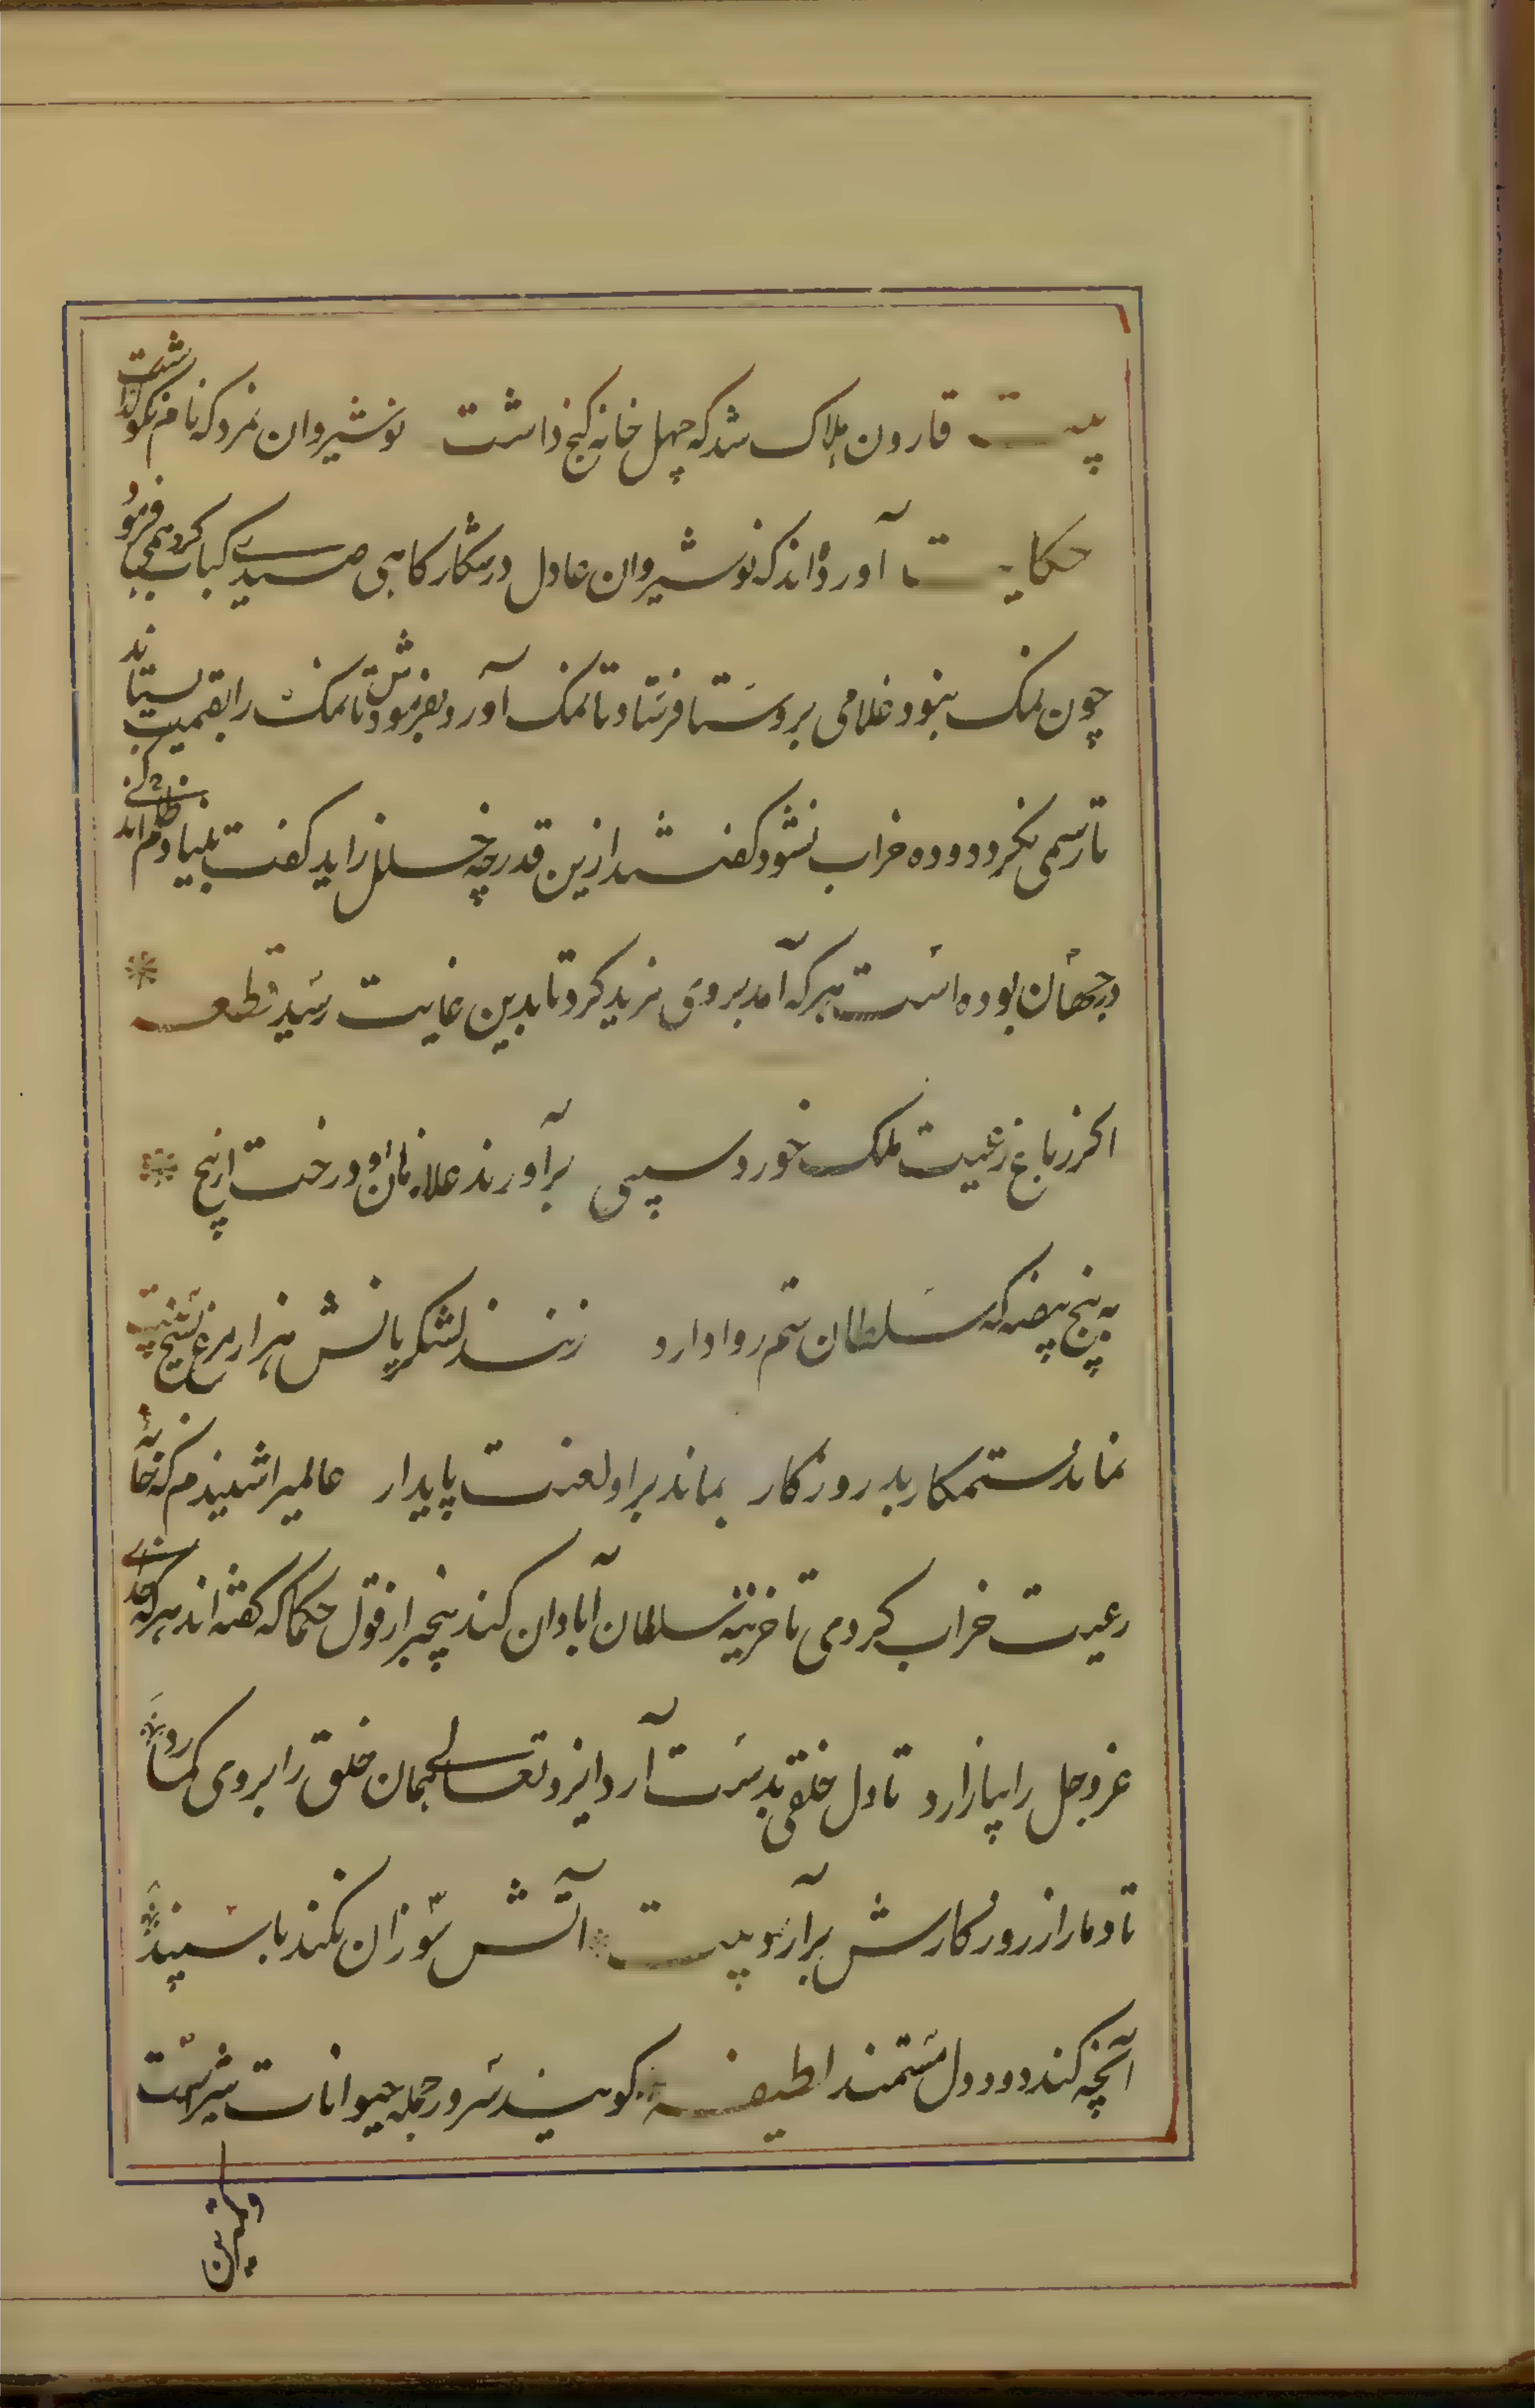 بیت قارون هلاک شد که چهل خانه کنج داشت نوشیروان نمرد که نام نکو کذاشت
حکایت آورده‌اند که نوشیروان عادل در شکارکاهی صیدی کباب کرد همی فرمود
چون نمک نبود غلامی بروستا فرستاد تا نمک آورد بفرمودش تا نمک را بقیمت بستاند
تا رسمی نکردد و ده خراب نشود کفتند ازین قدر چه خلل زاید کفت بنیاد ظلم اندکی
در جهان بوده است هر که آمد بروی مزید کرد تا بدین غایت رسید قطعه
اکر ز باغ رعیت ملک خورد سیبی برآورند غلامان او درخت از بیخ
به پنج بیضه که سلطان ستم روا دارد زنند لشکریانش هزار مرغ بسیخ بیت
نماند ستمکار بد روزکار بماند بر او لعنت پایدار عاملیرا شنیدم که خانهٔ
رعیت خراب کردمی تا خزینه سلطان آبادان کند بیخبر از قول حکما که کفته‌اند هر که خدای
عز و جل را بیازارد تا دل خلقی بدست آرد ایزد تعالی همان خلق را بروی کمارد
تا دمار از روزکارش برآرد بیت آتش سوزان نکند با سپند
آنچه کند دود دل مستمند لطیفه کویند سرور جمله حیوانات شیرست
وکمترین